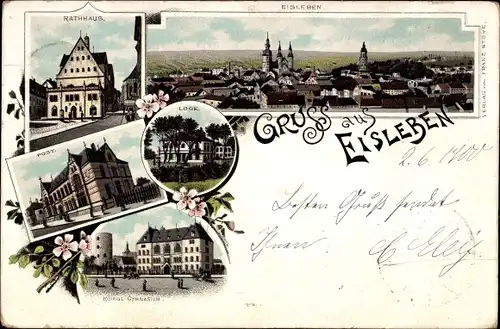 RATHHAUS.
EISLEBEN.
VERLAG von FRANZ STOYE.
LOGE.
POST.
GRUSS aus
EISLEBEN!
2.6.1900
Besten Gruß sendet
Ihnen
KÖNIGL. GYMNASIUM